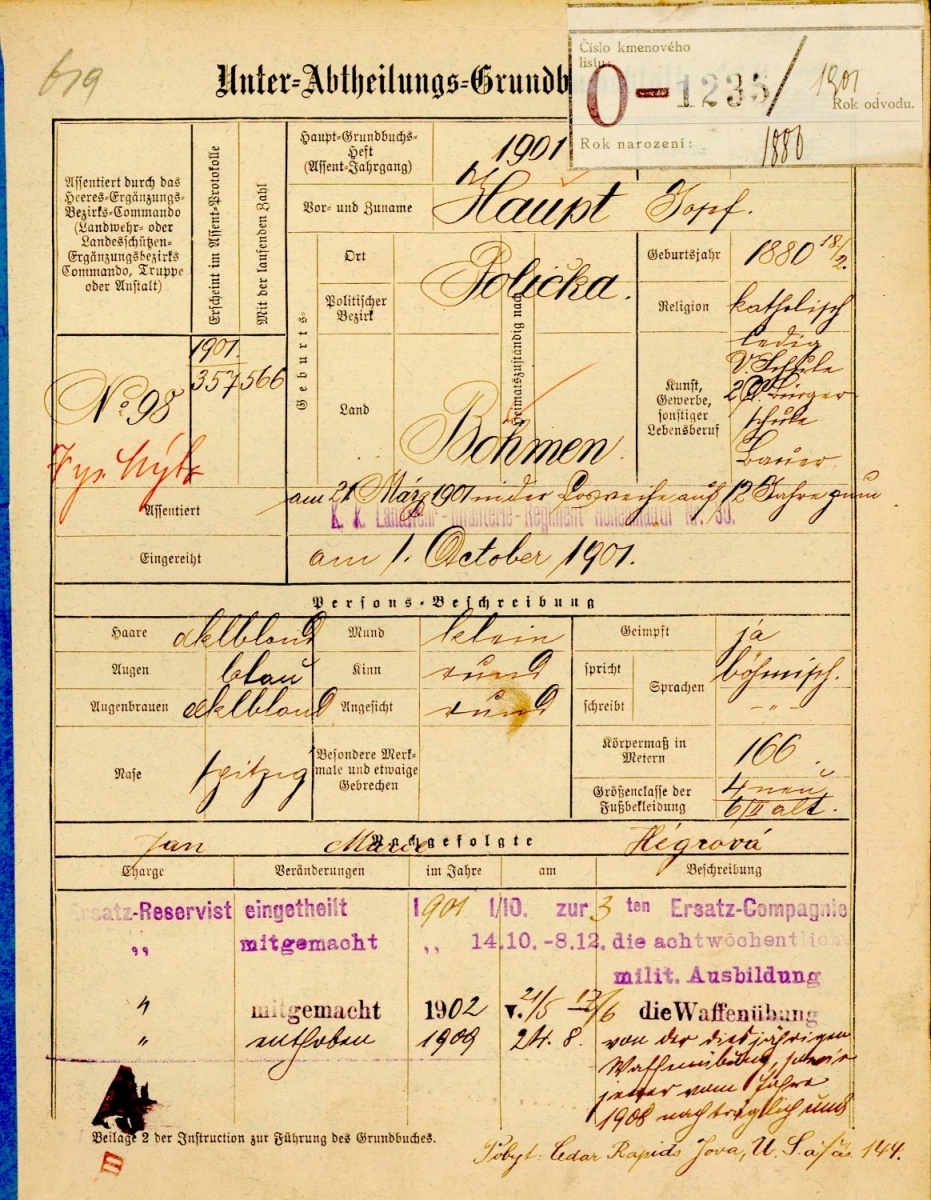 619
Unter-Abtheilungs-Grundb
Číslo kmenového
listu:
0-1235/1901
Rok odvodu.
Rok narození: 1880
Assentiert durch das
Heeres-Ergänzungs-
Bezirks-Commando
(Landwehr- oder
Landesschützen-
Ergänzungsbezirks
Commando, Truppe
oder Anstalt)
Erscheint im Assent-Protokolle
Mit der laufenden Zahl
Haupt-Grundbuchs-
Heft
(Assent-Jahrgang)
1901
Vor- und Zuname
Haupt Josef.
Geburts-
Ort
Politischer
Bezirk
Land
Heimatszuständig nach
Polička.
Böhmen
Geburtsjahr
1880 18/2.
Religion
katholisch
ledig
Kunst,
Gewerbe,
sonstiger
Lebensberuf
V. Schule
2 Bürger
schule
Bauer
1901.
357 566
No 98
Assentiert
am 21 März 1901 in der Losreihe auf 12 Jahre zum
K. K. Landwehr-Infanterie-Regiment Hohenmauth Nr. 30.
Eingereiht
am 1. October 1901.
Persons-Beschreibung
Haare dklblond
Mund klein
Geimpft ja
Augen blau
Kinn rund
spricht
Sprachen
böhmisch.
Augenbrauen dklblond
Angesicht rund
schreibt
-„-
Nase spitzig
Besondere Merk-
male und etwaige
Gebrechen
Körpermaß in
Metern
166
Größenclasse der
Fußbekleidung
4 neu
6/II alt.
Nachgefolgte
Jan Marie Hégrová
Charge Veränderungen im Jahre am Beschreibung
Ersatz-Reservist eingetheilt 1901 1/10. zur 3 ten Ersatz-Compagnie
„ mitgemacht „ 14.10.-8.12. die achtwöchentliche
milit. Ausbildung
„ mitgemacht 1902 v. 21/5 – 17/6 die Waffenübung
„ enthoben 1909 24. 8. von der diesjährigen
Waffenübung, sowie
jener vom Jahre
1908 nachträglich und
Beilage 2 der Instruction zur Führung des Grundbuches.
Pobyt: Cedar Rapids Jova, U. S. a/čís 144.